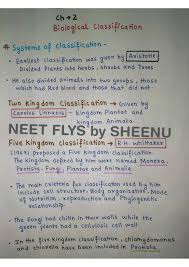 Ch → 2
Biological Classification
# Systems of classification -
• Earliest classification was given by Aristotle
Divided Plants into herbs, shrubs and Trees.
• He also divided animals into two groups, those
which had Red blood and those that did not
Two Kingdom Classification → Given by
Carolus Linnaeus - Kingdom Plantae and
Kingdom Animalia
NEET FLYS by SHEENU
Five Kingdom classification → R.H. Whittaker
(1969) proposed a Five Kingdom classification
The Kingdom defined by him were named Monera,
Protista, Fungi, Plantae and Animalia
• The main criteria for classification used by him
include cell structure, Body organisation, Mode
of Nutrition, reproduction and Phylogenetic
relationships.
• The Fungi had chitin in their walls while the
green plants had a cellulosic cell wall.
• In the five kingdom classification, chlamydomonas
and chlorella have been included in Protista.